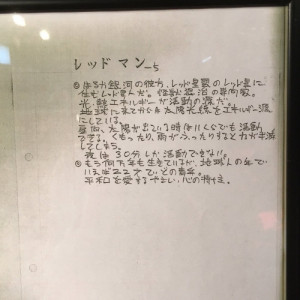 レッドマン-5
◎はるか銀河の彼方、レッド星雲のレッド星に
住むレッド星人だ。怪獣退治の専門家。
光、熱エネルギーが活動の源だ。
地球に来てからは太陽光線をエネルギー源
にしている。
昼間、太陽が出ている時はいくらでも活動
できる。くもったり、雨がふったりすると力が半減
してしまう。
夜は30分しか活動できない。
◎もう何万年も生きているが、地球人の年で
いえば22才ぐらいの青年。
平和を愛するやさしい心の持ち主。